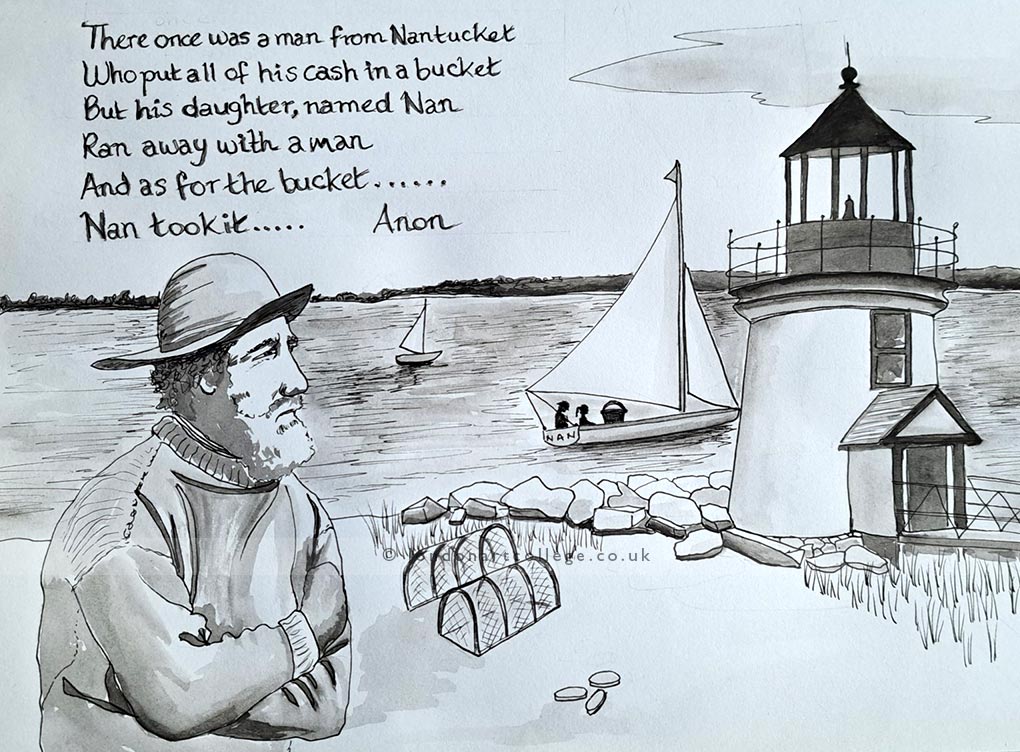 There once was a man from Nantucket
Who put all of his cash in a bucket
But his daughter, named Nan
Ran away with a man
And as for the bucket......
Nan took it..... Anon
NAN
© londonartcollege.co.uk